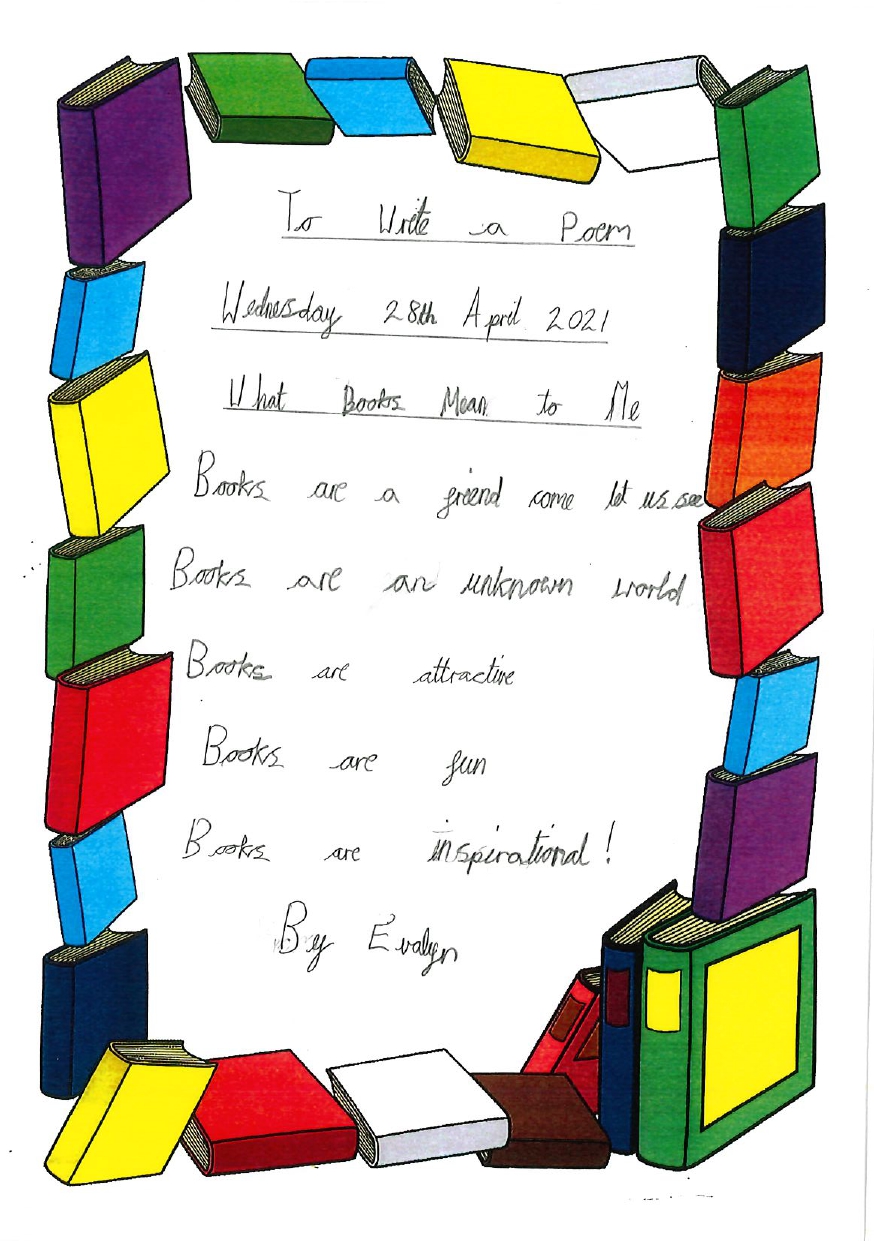 To Write a Poem
Wednesday 28th April 2021
What Books Mean to Me
Books are a friend come let us see
Books are an unknown world
Books are attractive
Books are fun
Books are inspirational!
By Evalyn